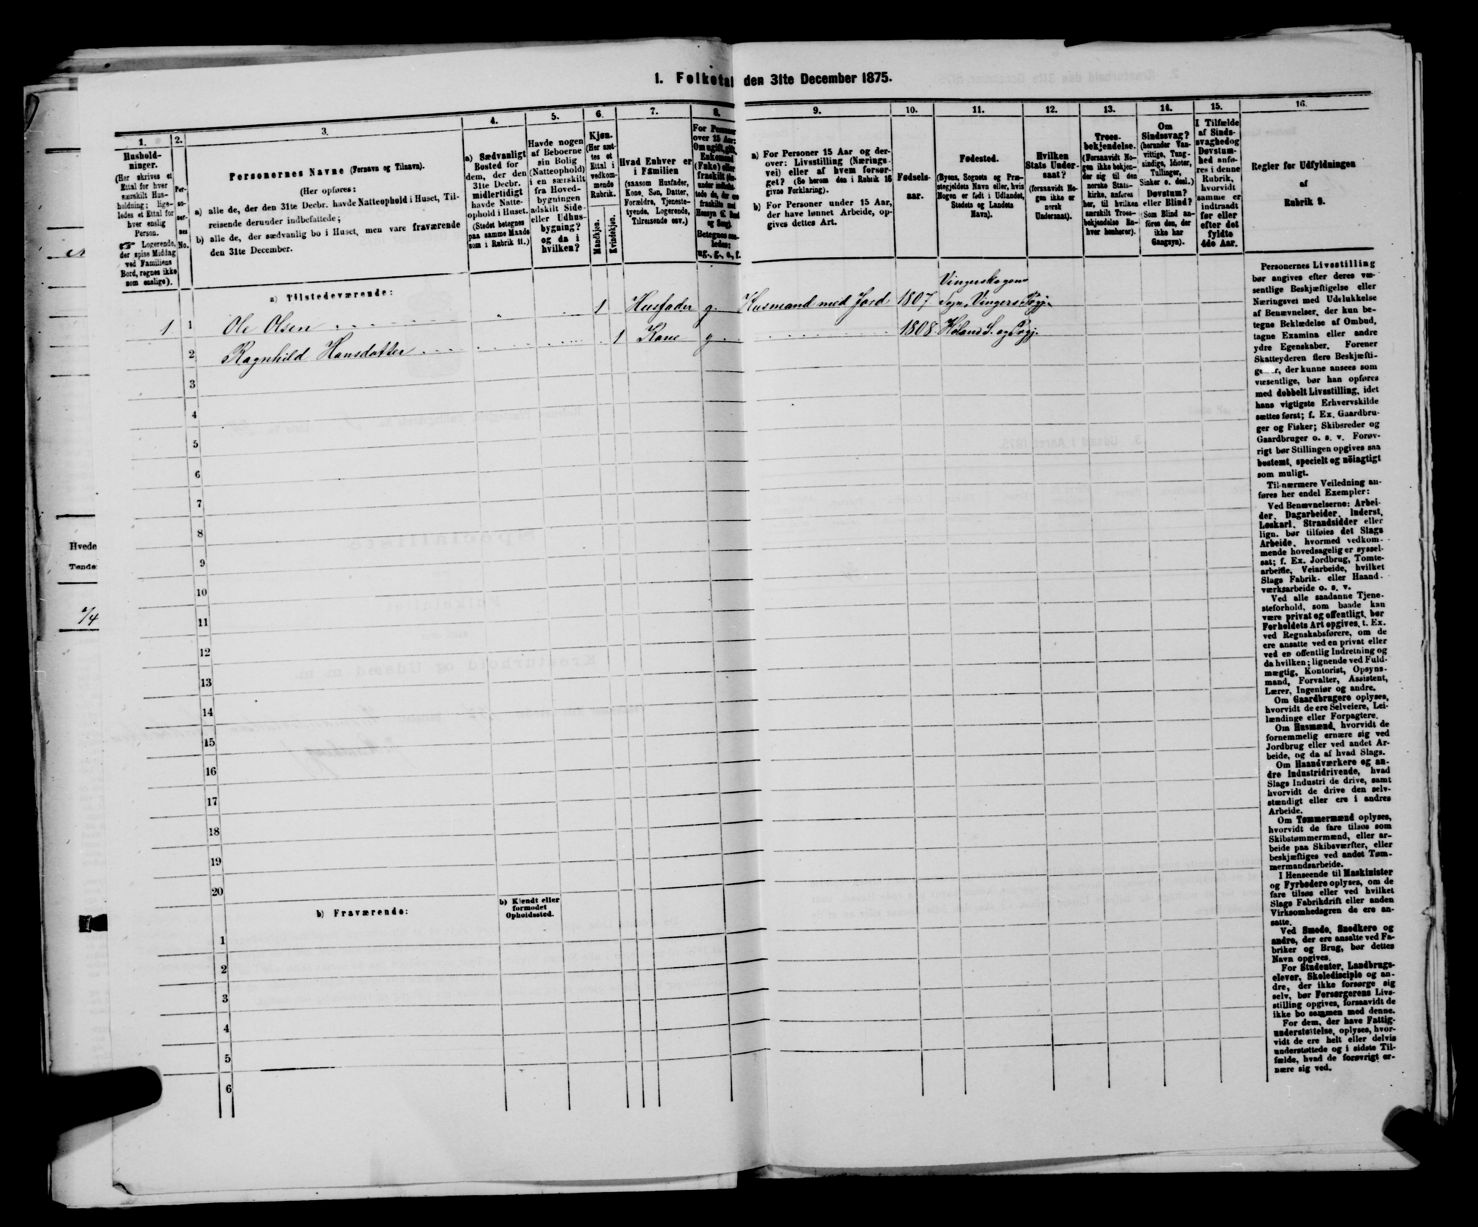 1. Folketal den 31te December 1875.
1.
Hushold-
ninger.
(Her skrives et
Ettal for hver
særskilt Hus-
holdning; lige-
ledes et Ettal for
hver enslig
Person.
☞ Logerende,
der spise Middag
ved Familiens
Bord, regnes ikke
som enslige).
2.
Per-
so-
ner-
nes
No.
3.
Personernes Navne (Fornavn og Tilnavn).
(Her opføres:
a) alle de, der den 31te Decbr. havde Natteophold i Huset, Til-
reisende derunder indbefattede;
b) alle de, der sædvanlig bo i Huset, men vare fraværende
den 31te December.
4.
a) Sædvanligt
Bosted for
dem, der den
31te Decbr.
midlertidigt
havde Natte-
ophold i Huset.
(Stedet betegnes
paa samme Maade
som i Rubrik 11.)
5.
Havde nogen
af Beboerne
sin Bolig
(Natteophold)
i en særskilt
fra Hoved-
bygningen
adskilt Side-
eller Udhus-
bygning?
og da i
hvilken?
6.
Kjøn.
(Her sæt-
tes et
Ettal i
vedkom-
mende
Rubrik.
Mandkjøn.
Kvindekjøn.
7.
Hvad Enhver er
i Familien
(saasom Husfader,
Kone, Søn, Datter,
Forældre, Tjeneste-
tyende, Logerende,
Tilreisende osv.)
8.
For Personer
over 15 Aar:
Om ugift, gift,
Enkemand
(Enke) eller
fraskilt
ug., g., e., f.
9.
a) For Personer 15 Aar og der-
over: Livsstilling (Nærings-
vei) eller af hvem forsør-
get? (Se herom den i Rubrik 16
givne Forklaring).
b) For Personer under 15 Aar,
der have lønnet Arbeide, op-
gives dettes Art.
10.
Fødsels-
aar.
11.
Fødested.
(Byens, Sognets og Præ-
stegjeldets Navn eller, hvis
Nogen er født i Udlandet,
Stedets og Landets
Navn).
12.
Hvilken
Stats Under-
saat?
(forsaavidt No-
gen ikke er
norsk
Undersaat).
13.
Troes-
bekjendelse.
(Forsaavidt No-
gen ikke bekjen-
der sig til den
norske Stats-
kirke, anføres
her, til hvilken
særskilt Troes-
bekjendelse En-
hver henhører).
14.
Om
Sindssvag?
(herunder Van-
vittige, Tung-
sindige, Idioter,
Tullinger,
Sinker o. desl.)
Døvstum?
eller Blind?
(Som Blind an-
føres den, der
ikke har
Gangsyn).
15.
I Tilfælde
af Sinds-
svaghed og
Døvstum-
hed anfø-
res i denne
Rubrik,
hvorvidt
samme er
indtraadt
før eller
efter det
fyldte
4de Aar.
16.
Regler for Udfyldningen
af
Rubrik 9.
a) Tilstedeværende:
1 1 Ole Olsen 1 Husfader g. Husmand med Jord 1807 Vingerskogens
Sogn, Vingers Pgj.
2 Ragnhild Hansdatter 1 Kone g 1808 Høland S. og Pgj.
3
4
5
6
7
8
9
10
11
12
13
14
15
16
17
18
19
20
b) Fraværende:
b) Kjendt eller
formodet
Opholdssted.
1
2
3
4
5
6
Personernes Livsstilling
bør angives efter deres væ-
sentlige Beskjæftigelse eller
Næringsvei med Udelukkelse
af Benævnelser, der kun be-
tegne Beklædelse af Ombud,
tagne Examina eller andre
ydre Egenskaber. Forener
Skatteyderen flere Beskjæfti-
gelser, der kunne ansees som
væsentlige, bør han opføres
med dobbelt Livsstilling, idet
hans vigtigste Erhvervskilde
sættes først; f. Ex. Gaardbru-
ger og Fisker; Skibsreder og
Gaardbruger o. s. v. Forøv-
rigt bør Stillingen opgives saa
bestemt, specielt og nöiagtigt
som muligt.
Til nærmere Veiledning an-
føres her endel Exempler:
Ved Benævnelserne: Arbei-
der, Dagarbeider, Inderst,
Løskarl, Strandsidder eller
lign. bør tilføies det Slags
Arbeide, hvormed vedkom-
mende hovedsagelig er syssel-
sat; f. Ex. Jordbrug, Tomte-
arbeide, Veiarbeide, hvilket
Slags Fabrik- eller Haand-
værksarbeide o. s. v.
Ved alle saadanne Tjene-
steforhold, som baade kan
være privat og offentligt, bør
Forholdets Art opgives, t. Ex.
ved Regnskabsførere, om de
ere ansatte ved en privat eller
ved en offentlig Indretning og
da hvilken; lignende ved Fuld-
mægtig, Kontorist, Opsyns-
mand, Forvalter, Assistent,
Lærer, Ingeniør og andre.
Om Gaardbrugere oplyses,
hvorvidt de ere Selveiere, Lei-
lændinge eller Forpagtere.
Om Husmænd, hvorvidt de
fornemmelig ernære sig ved
Jordbrug eller ved andet Ar-
beide, og da af hvad Slags.
Om Haandværkere og an-
dre Industridrivende, hvad
Slags Industri de drive, samt
hvorvidt de drive den selv-
stændigt eller ere i andres
Arbeide.
Om Tømmermænd oplyses,
hvorvidt de fare tilsøs som
Skibstømmermænd, eller ar-
beide paa Skibsværfter, eller
beskjæftiges ved andet Tøm-
mermandsarbeide.
I Henseende til Maskinister
og Fyrbødere oplyses, om de
fare tilsøs eller ved hvilket
Slags Fabrikdrift eller anden
Virksomhedsgren de ere an-
satte.
Ved Smede, Snedkere og
andre, der ere ansatte ved Fa-
briker og Brug, bør dettes
Navn opgives.
For Studenter, Landbrugs-
elever, Skoledisciple og an-
dre, der ikke forsørge sig
selv, bør Forsørgerens Livs-
stilling opgives, forsaavidt de
ikke bo sammen med denne.
For dem, der have Fattig-
understøttelse, oplyses, hvor-
vidt de ere helt eller delvis
understøttede og i sidste Til-
fælde, hvad de forøvrigt er-
nære sig ved.
Hvede
Tønde
1/4